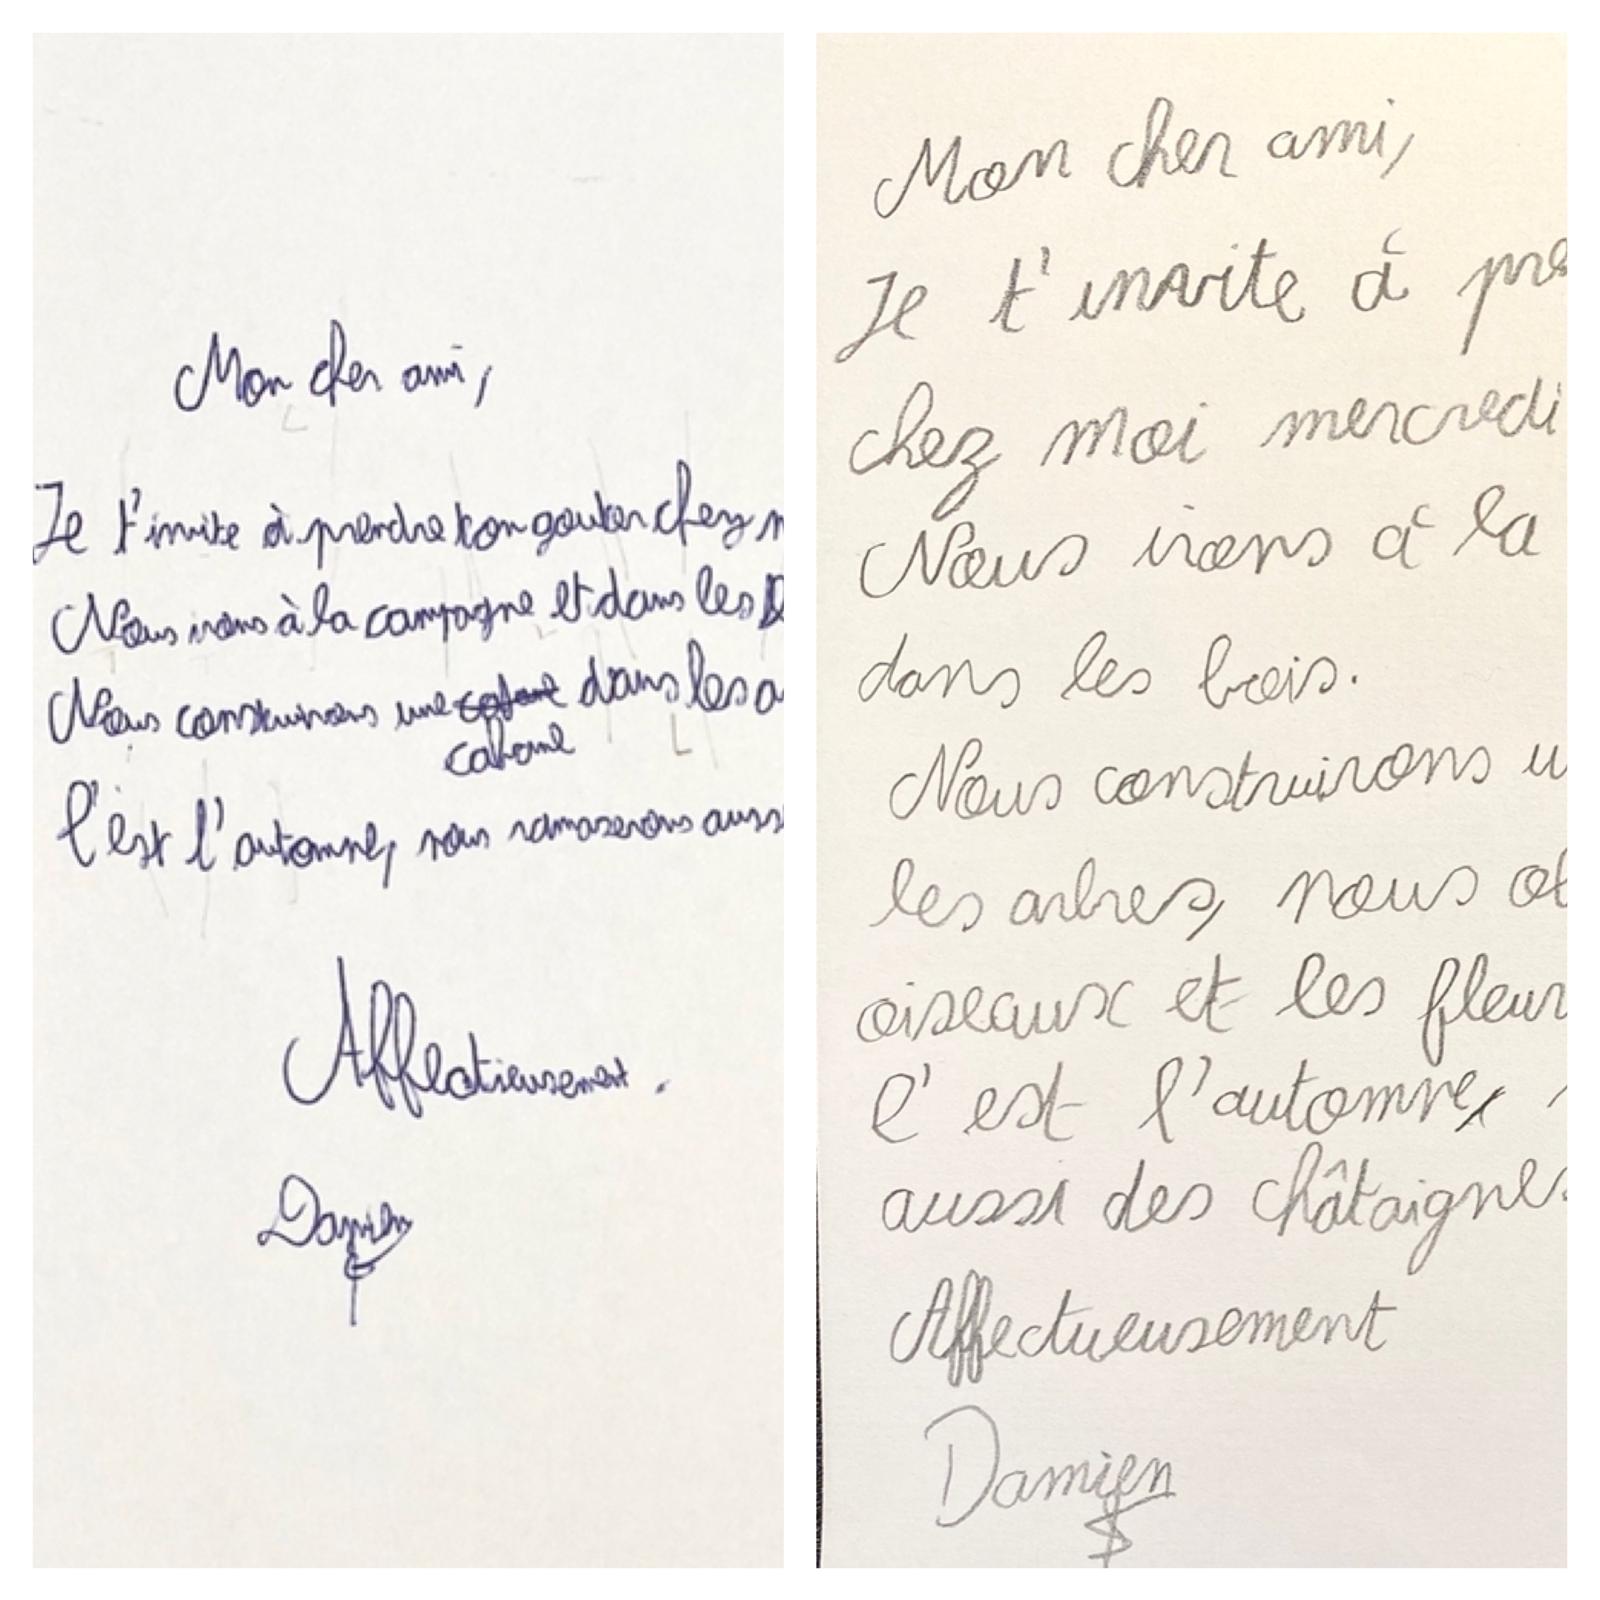 Mon cher ami,
Je t'invite à prendre ton gouter chez
Nous irons à la campagne et dans les
Nous construirons une dans les a
cabane
C'est l'automne, nous ramaserons auss
Affectieusement.
Damien
Mon cher ami,
Je t'invite à pre
chez moi mercredi
Nous irons à la
dans les bois.
Nous construirons u
les arbres, nous ob
oiseaux et les fleur
C'est l'automne,
aussi des châtaignes
Affectueusement
Damien